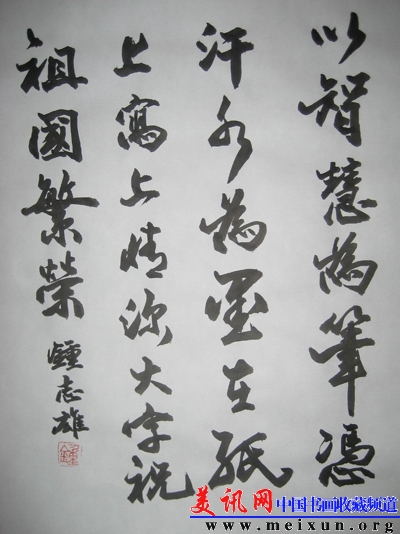 以智慧為筆憑
汗水為墨在紙
上寫上情深大字祝
祖國繁榮
鍾志雄
美讯网 中国书画收藏频道
www.meixun.org